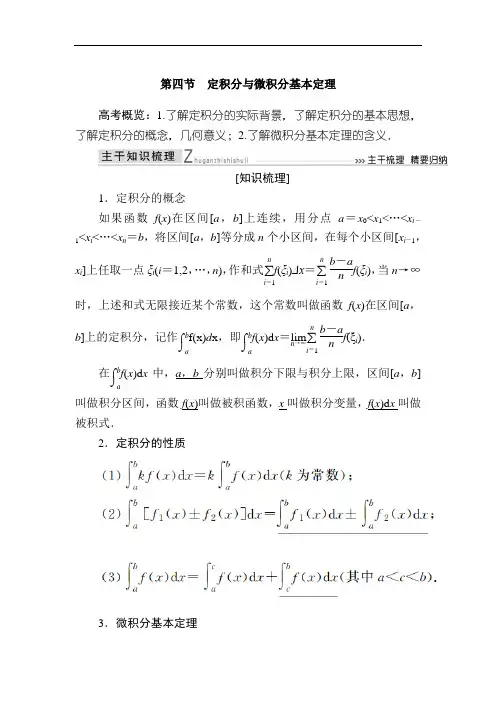 第四节 定积分与微积分基本定理
高考概览：1.了解定积分的实际背景，了解定积分的基本思想，
了解定积分的概念，几何意义；2.了解微积分基本定理的含义．
主干知识梳理 Zhuganzhishishuli >>> 主干梳理 精要归纳
[知识梳理]
1．定积分的概念
如果函数 f(x)在区间[a，b]上连续，用分点 a＝x₀<x₁<…<xᵢ₋
₁<xᵢ<…<xₙ＝b，将区间[a，b]等分成 n 个小区间，在每个小区间[xᵢ₋₁，
xᵢ]上任取一点 ξᵢ(i＝1,2，…，n)，作和式∑ⁿᵢ₌₁f(ξᵢ)⅃x＝∑ⁿᵢ₌₁ (b－a)/n f(ξᵢ)，当 n→∞
时，上述和式无限接近某个常数，这个常数叫做函数 f(x)在区间[a，
b]上的定积分，记作∫ₐᵇf(x)dx，即∫ₐᵇf(x)dx＝lim n→∞ ∑ⁿᵢ₌₁ (b－a)/n f(ξᵢ)．
在∫ₐᵇf(x)dx 中，a，b 分别叫做积分下限与积分上限，区间[a，b]
叫做积分区间，函数 f(x)叫做被积函数，x 叫做积分变量，f(x)dx 叫做
被积式．
2．定积分的性质
(1)∫ₐᵇkf(x)dx=k∫ₐᵇf(x)dx(k 为常数)；
(2)∫ₐᵇ[f₁(x)±f₂(x)]dx=∫ₐᵇf₁(x)dx±∫ₐᵇf₂(x)dx；
(3)∫ₐᵇf(x)dx=∫ₐᶜf(x)dx+∫꜀ᵇf(x)dx(其中 a＜c＜b)．
3．微积分基本定理